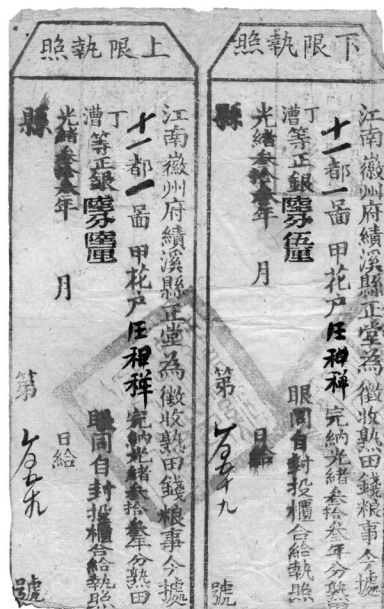 下限執照
江南徽州府績溪縣正堂為徵收熟田錢粮事今據
十一都一啚 甲花户汪視祥 完納光緒叁拾叁年分熟田
丁漕等正銀陸分伍厘 眼同自封投櫃合給執照
光緒叁拾叁年 月 日給
縣 第 号
上限執照
江南徽州府績溪縣正堂為徵收熟田錢粮事今據
十一都一啚 甲花户汪視祥 完納光緒叁拾叁年分熟田
丁漕等正銀陸分陸厘 眼同自封投櫃合給執照
光緒叁拾叁年 月 日給
縣 第 號